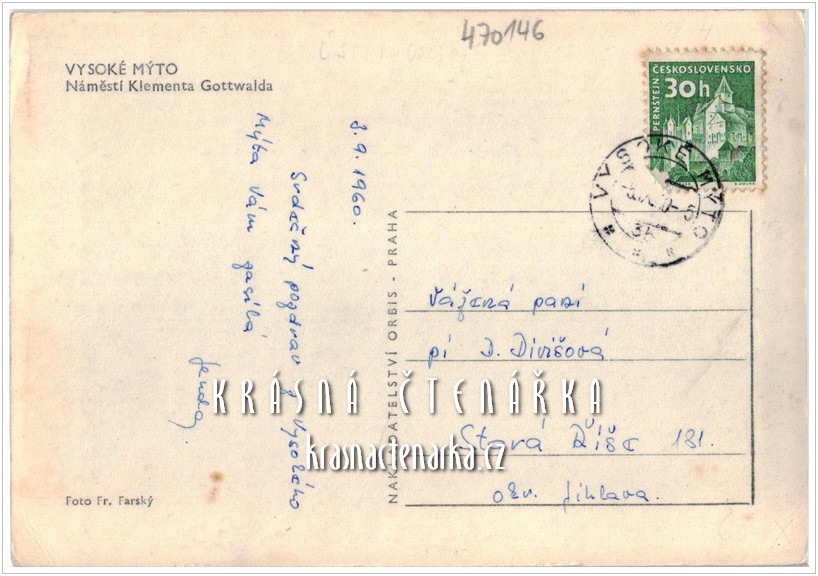 470146
VYSOKÉ MÝTO
Náměstí Klementa Gottwalda
ČESKOSLOVENSKO
30h
PERNŠTEJN
VYSOKÉ MÝTO
8.9.1960.
Srdečný pozdrav z Vysokého
Mýta Vám zasílá
Jenda
NAKLADATELSTVÍ ORBIS - PRAHA
Vážená paní
pí D. Divišová
Stará Říše 131.
okr. Jihlava.
KRÁSNÁ ČTENÁŘKA
krasnactenarka.cz
Foto Fr. Farský